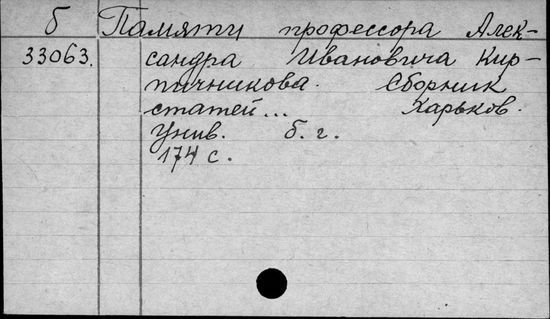 б Памяти профессора Алек-
33063. сандра Ивановича Кир-
пичникова. Сборник
статей... Харьков.
Унив. б. г.
174 с.